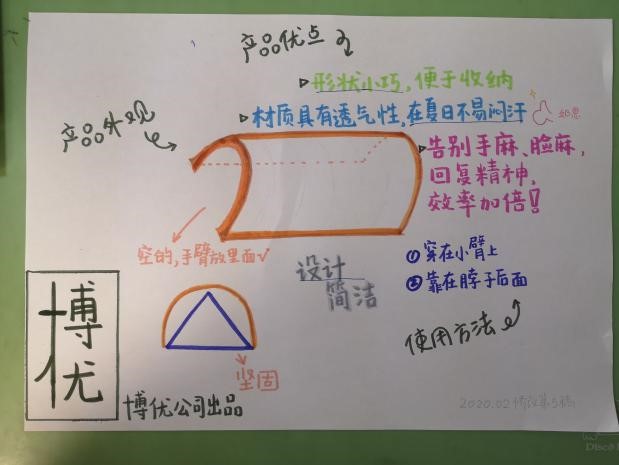 产品优点
形状小巧，便于收纳
材质具有透气性，在夏日不易闷汗
产品外观
告别手麻、脸麻，
回复精神，
效率加倍！
空的，手臂放里面√
设计
简洁
①穿在小臂上
②靠在脖子后面
使用方法
坚固
博优
博优公司出品
2020.02修改第5稿